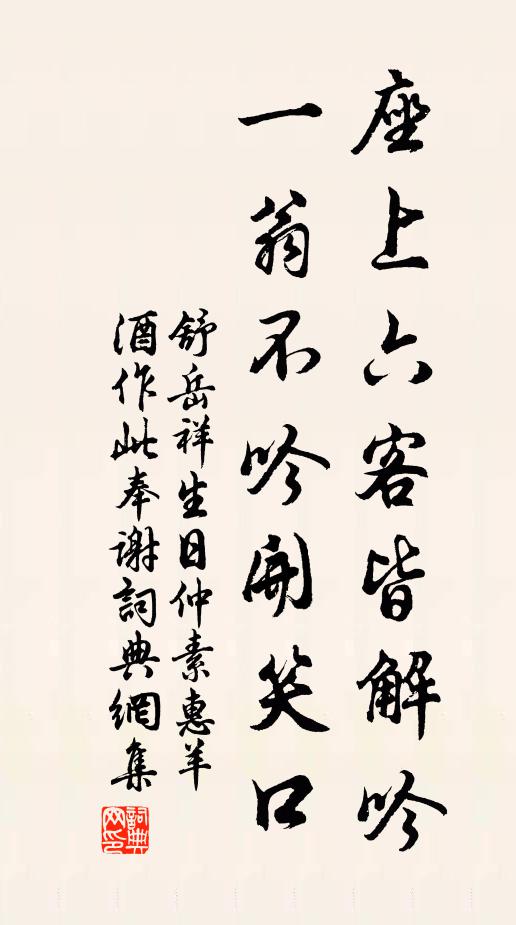 座上六客皆解吟
一翁不吟開笑口
舒岳祥生日仲素惠羊
酒作此奉谢詞典網集
詞典
网印